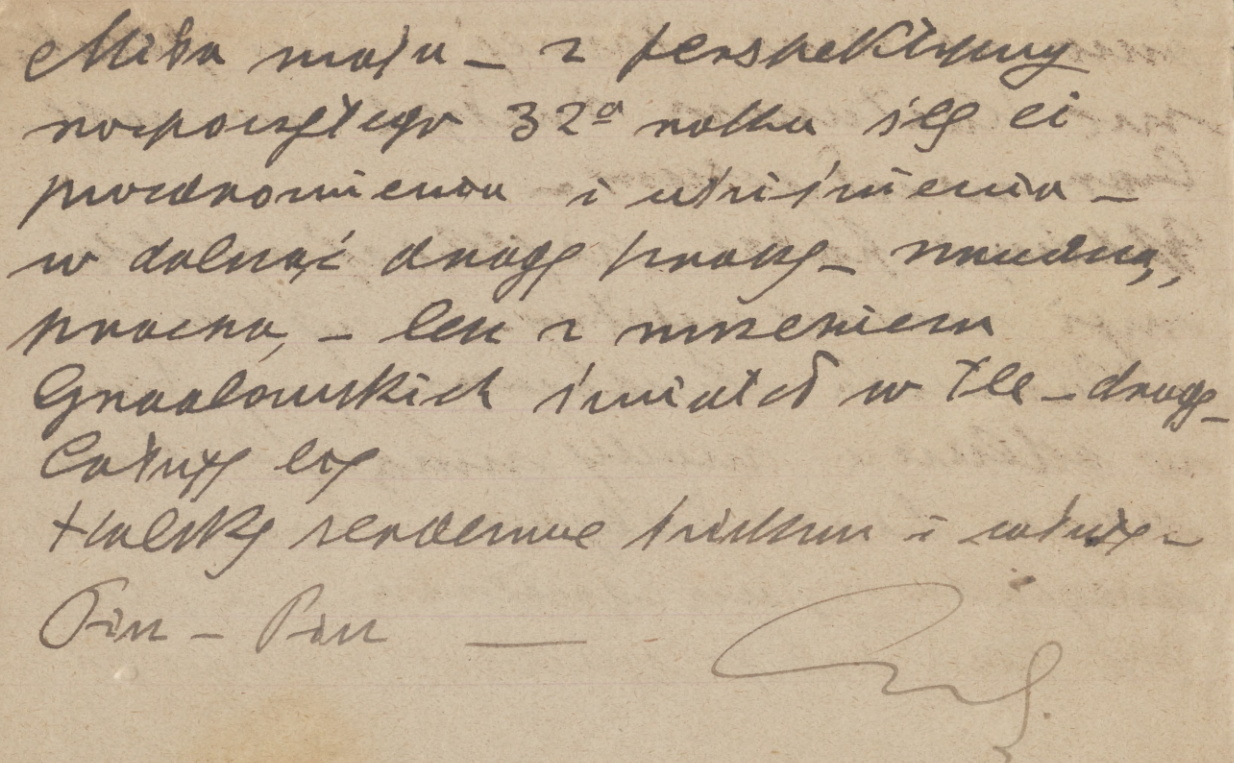 Miła moja – z perspektywy
rozpoczętego 32º rokku ślę ci
pozdrowienia i uściśnienia –
w dalszą drogę pracy – nudną,
pracną, – lecz z marzeniem
Graalowskich świateł w tle – drogę –
Całuję Cię
Halskę serdecznie ściskam i całuję –
Pin – Pin —